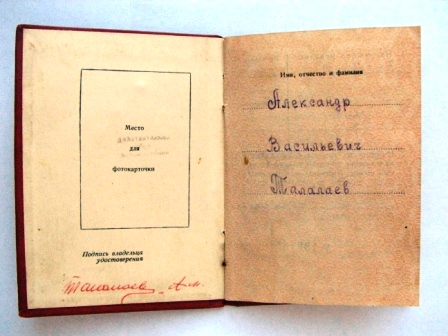 Место
для
фотокарточки
Подпись владельца
удостоверения
Талалаев
Имя, отчество и фамилия
Александр
Васильевич
Талалаев